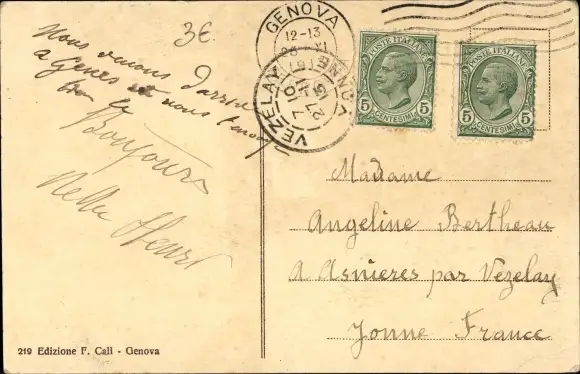 3€
Nous venons d'arriver
a Gênes et nous
Bonjours
Nella Henri
GENOVA
12-13
XI
VEZELAY
YONNE
27
POSTE ITALIANE
5 5
CENTESIMI
POSTE ITALIANE
5 5
CENTESIMI
Madame
Angeline Bertheau
A Asnieres par Vezelay
Yonne France
219 Edizione F. Cali - Genova